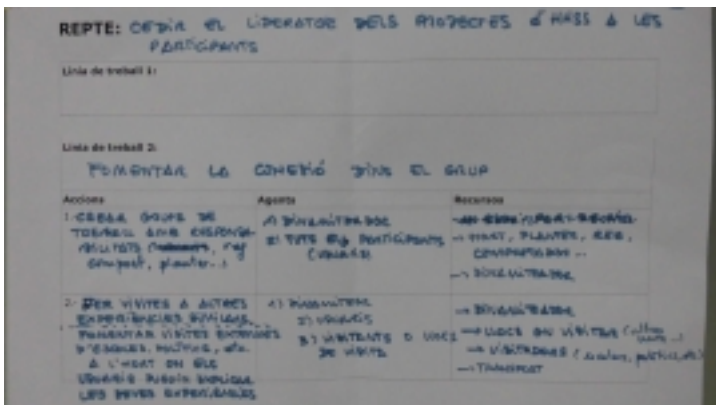 REPTE: CEDIR EL LIDERATGE DELS PROJECTES D'HABS A LES
PARTICIPANTS
Línia de treball 1:
Línia de treball 2:
FOMENTAR LA COHESIÓ DINS EL GRUP
Accions
Agents
Recursos
1- CREAR GRUPS DE
TREBALL AMB RESPONSA-
BILITATS
compost, planter...)
1) DINAMITZADOR
2) TOTS ELS PARTICIPANTS
→ HORT, PLANTER, REG,
COMPOSTADOR...
→ DINAMITZADOR
2- FER VISITES A ALTRES
EXPERIÈNCIES SIMILARS
FOMENTAR VISITES EXTERNES
D'ESCOLES, POLÍTICS, etc.
A L'HORT ON ELS
USUARIS PUGUIN EXPLICAR
LES SEVES EXPERIÈNCIES
1)
2) USUARIS
3) VISITANTS O LLOCS
DE VISITA
→ DINAMITZADOR
→ LLOCS ON VISITAR
→ VISITADORS
→ TRANSPORT